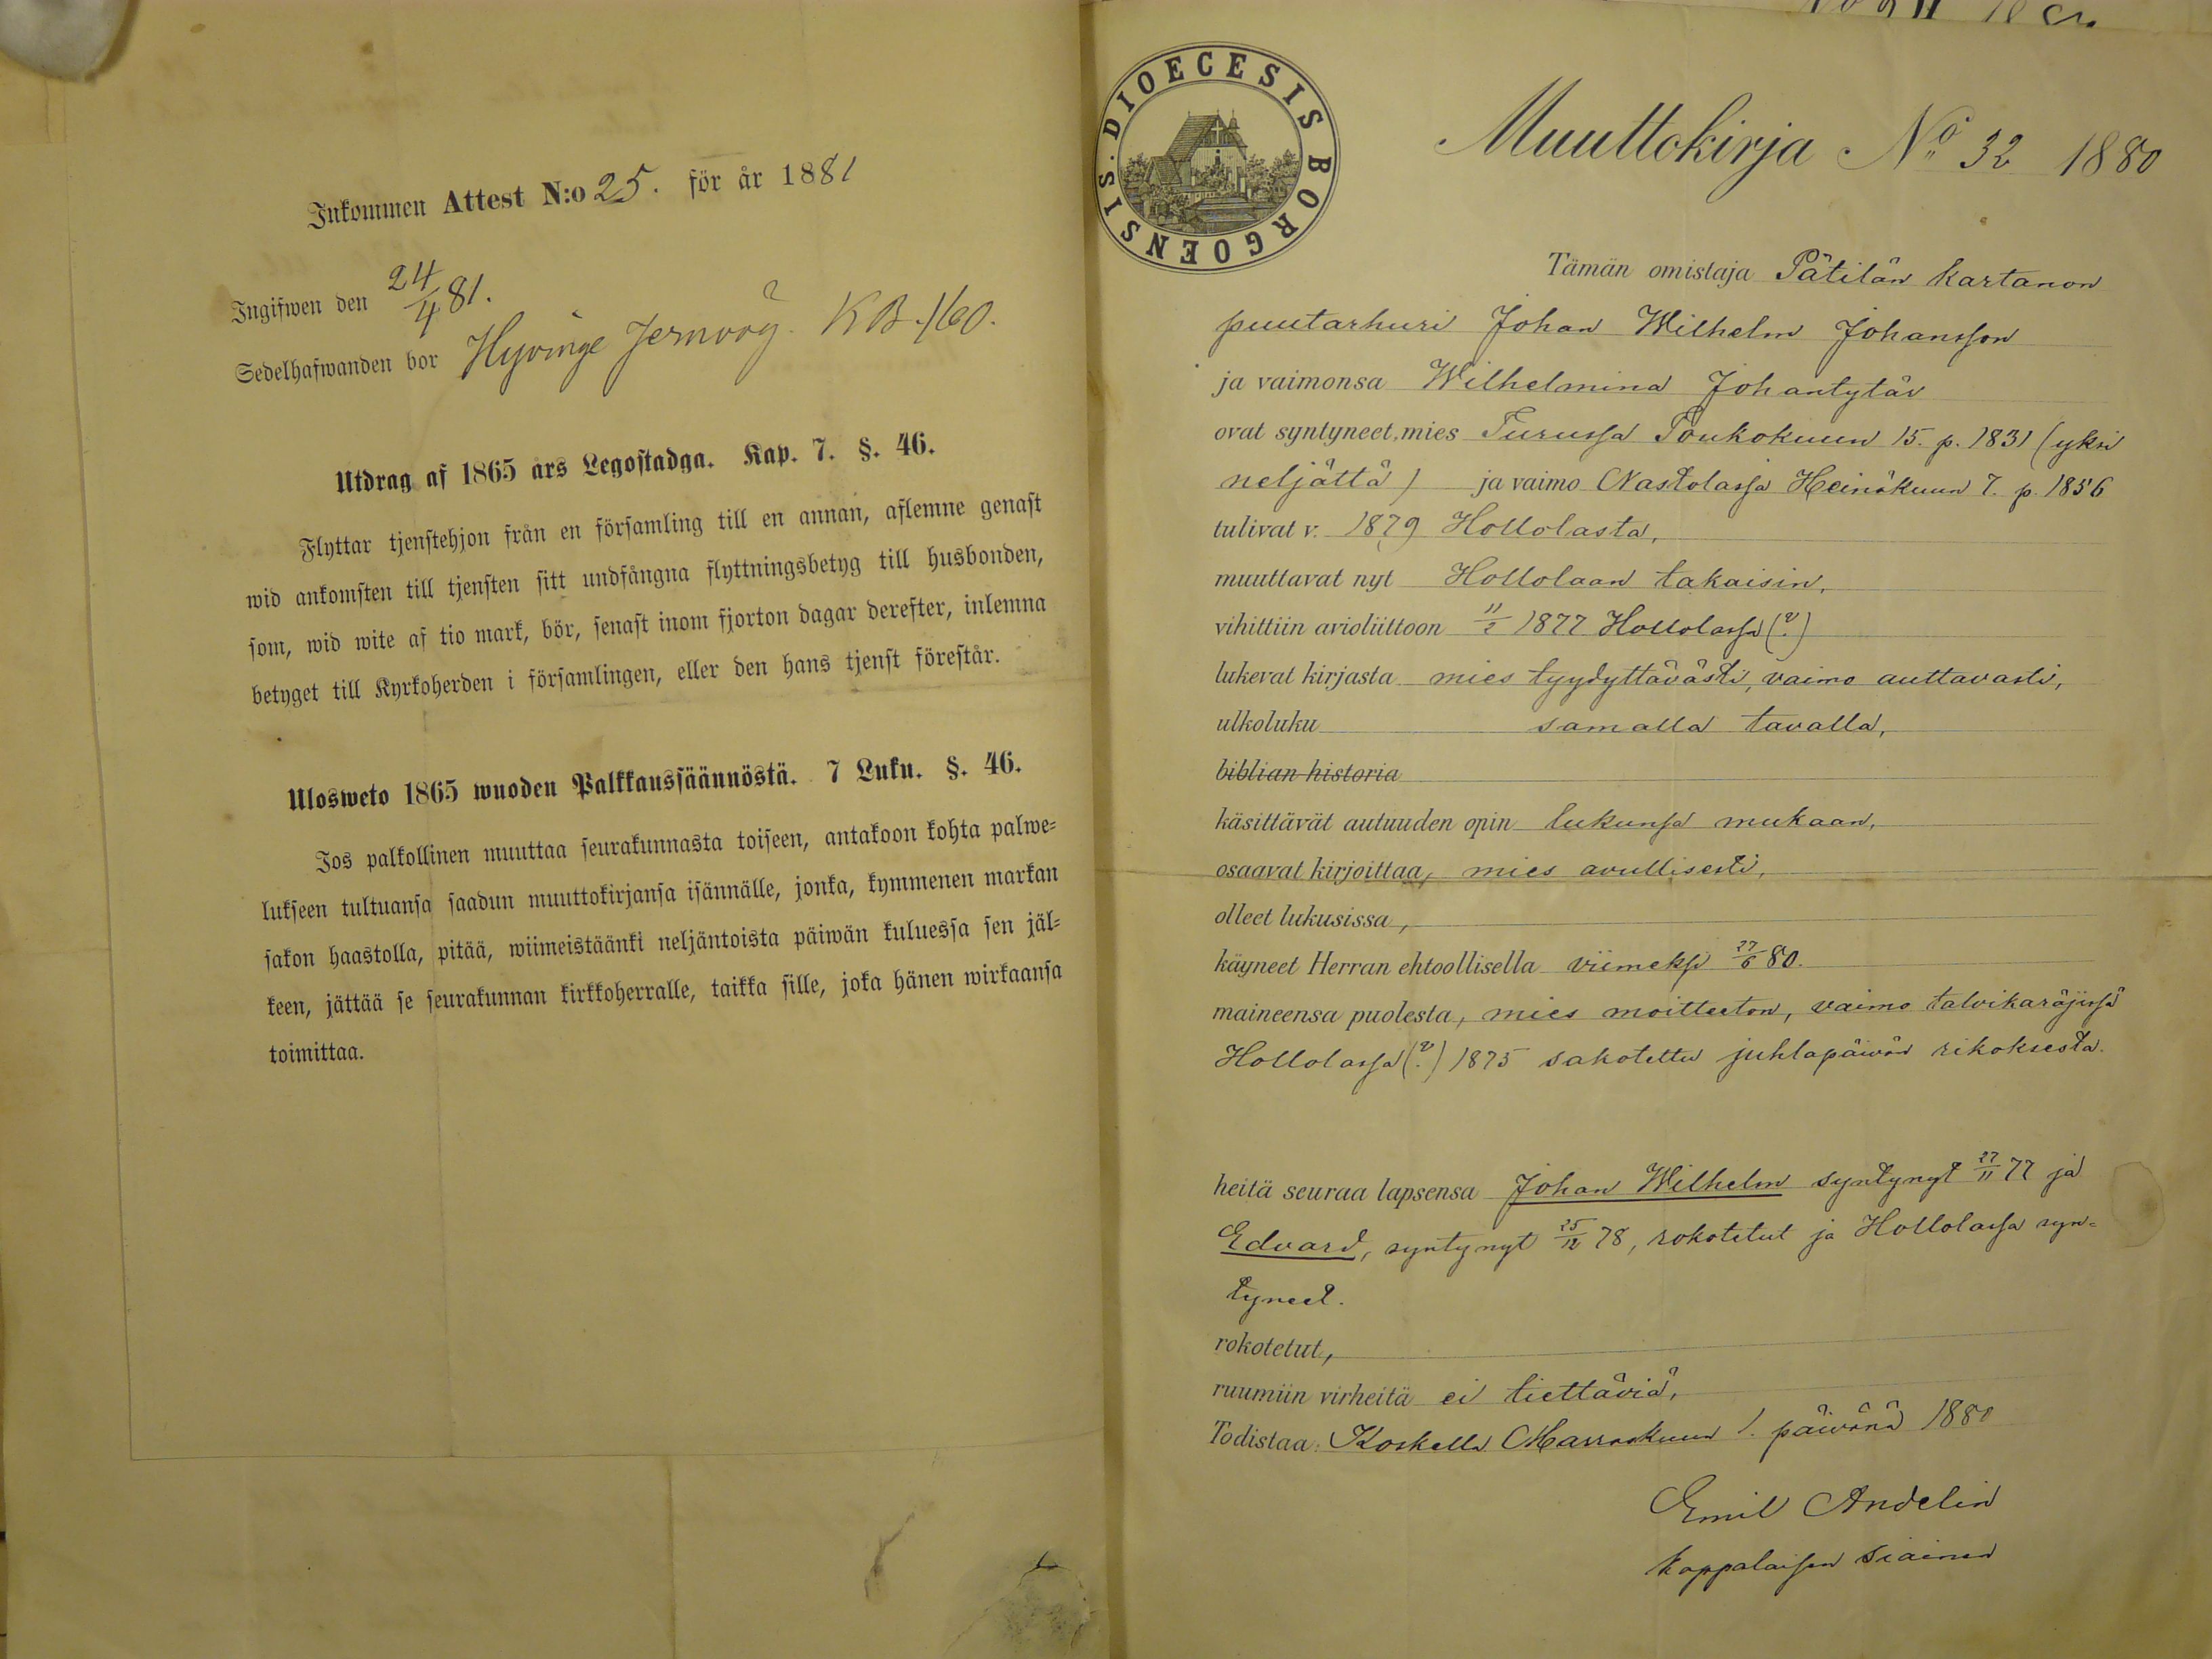 Inkommen Attest N:o 25. för år 1881
Ingifwen den 24/4 81.
Sedelhafwanden bor Hyvinge Jernväg. KB. 160.
Utdrag af 1865 års Legostadga. Kap. 7. §. 46.
Flyttar tjenstehjon från en församling till en annan, aflemne genast
wid ankomsten till tjensten sitt undfångna flyttningsbetyg till husbonden,
som, wid wite af tio mark, bör, senast inom fjorton dagar derefter, inlemna
betyget till Kyrkoherden i församlingen, eller den hans tjenst förestår.
Ulosweto 1865 wuoden Palkkaussäännöstä. 7 Luku. §. 46.
Jos palkollinen muuttaa seurakunnasta toiseen, antakoon kohta palwe-
lukseen tultuansa saadun muuttokirjansa isännälle, jonka, kymmenen markan
sakon haastolla, pitää, wiimeistäänki neljäntoista päiwän kuluessa sen jäl-
keen, jättää se seurakunnan kirkkoherralle, taikka sille, joka hänen wirkaansa
toimittaa.
DIOECESIS BORGOENSIS.
Muuttokirja No 32 1880
Tämän omistaja Pätilän kartanon
puutarhuri Johan Wilhelm Johansson
ja vaimonsa Wilhelmina Johantytär
ovat syntyneet, mies Turussa Toukokuun 15. p. 1831 (yksi
neljättä) ja vaimo Nastolassa Heinäkuun 7. p. 1856
tulivat v. 1879 Hollolasta,
muuttavat nyt Hollolaan takaisin,
vihittiin avioliittoon 11/2 1877 Hollolassa (?)
lukevat kirjasta mies tyydyttävästi, vaimo auttavasti,
ulkoluku samalla tavalla,
biblian historia
käsittävät autuuden opin lukunsa mukaan,
osaavat kirjoittaa, mies avullisesti,
olleet lukusissa,
käyneet Herran ehtoollisella viimeksi 27/6 80.
maineensa puolesta, mies moitteeton, vaimo talvikäräjissä
Hollolassa (?) 1875 sakotettu juhlapäivän rikoksesta.
heitä seuraa lapsensa Johan Wilhelm syntynyt 27/11 77 ja
Edvard, syntynyt 25/12 78, rokotetut ja Hollolassa syn-
tyneet.
rokotetut,
ruumiin virheitä ei tiettäviä,
Todistaa: Koskella Marraskuun 1. päivänä 1880
Emil Andelin
kappalaisen siainen